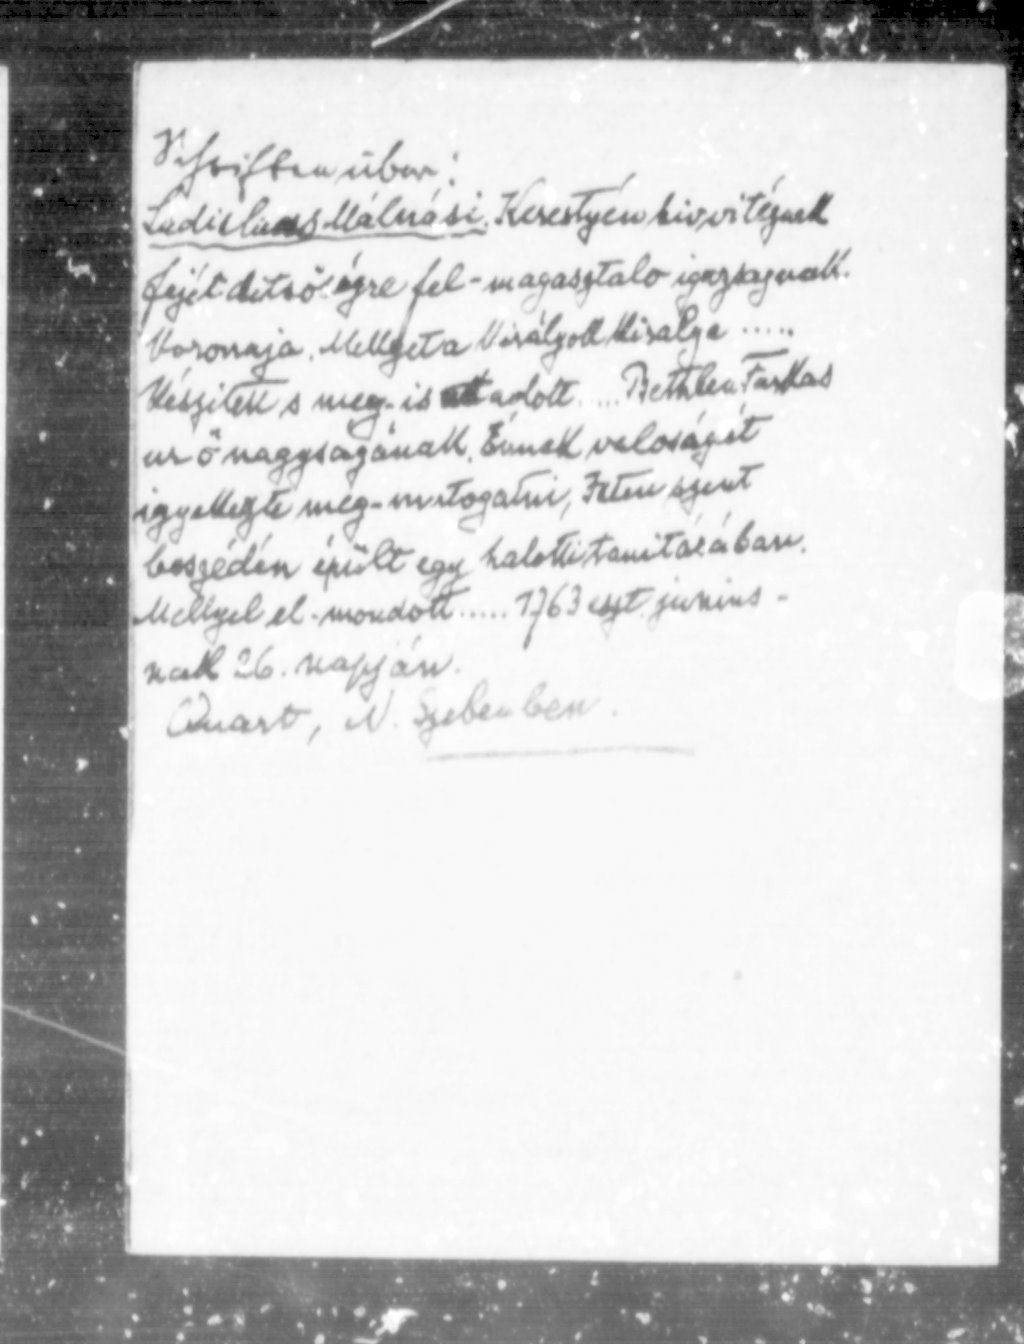 Schriften über:
Ladislaus Málnási. Kerestyén hiv vitéznek
fejét ditsőségre fel-magasztalo igazságnak
Koronája. Mellyet a Királyok Királya .....
Készitett s meg-is adott ..... Bethlen Farkas
ur ő nagyságának. Ennek valoságát
igyekezte meg-mutogatni, Isten szent
beszédén épült egy halotti tanitásában.
Mellyel el-mondott ...... 1763 eszt. junius-
nak 26. napján.
Quart, N. Szebenben.